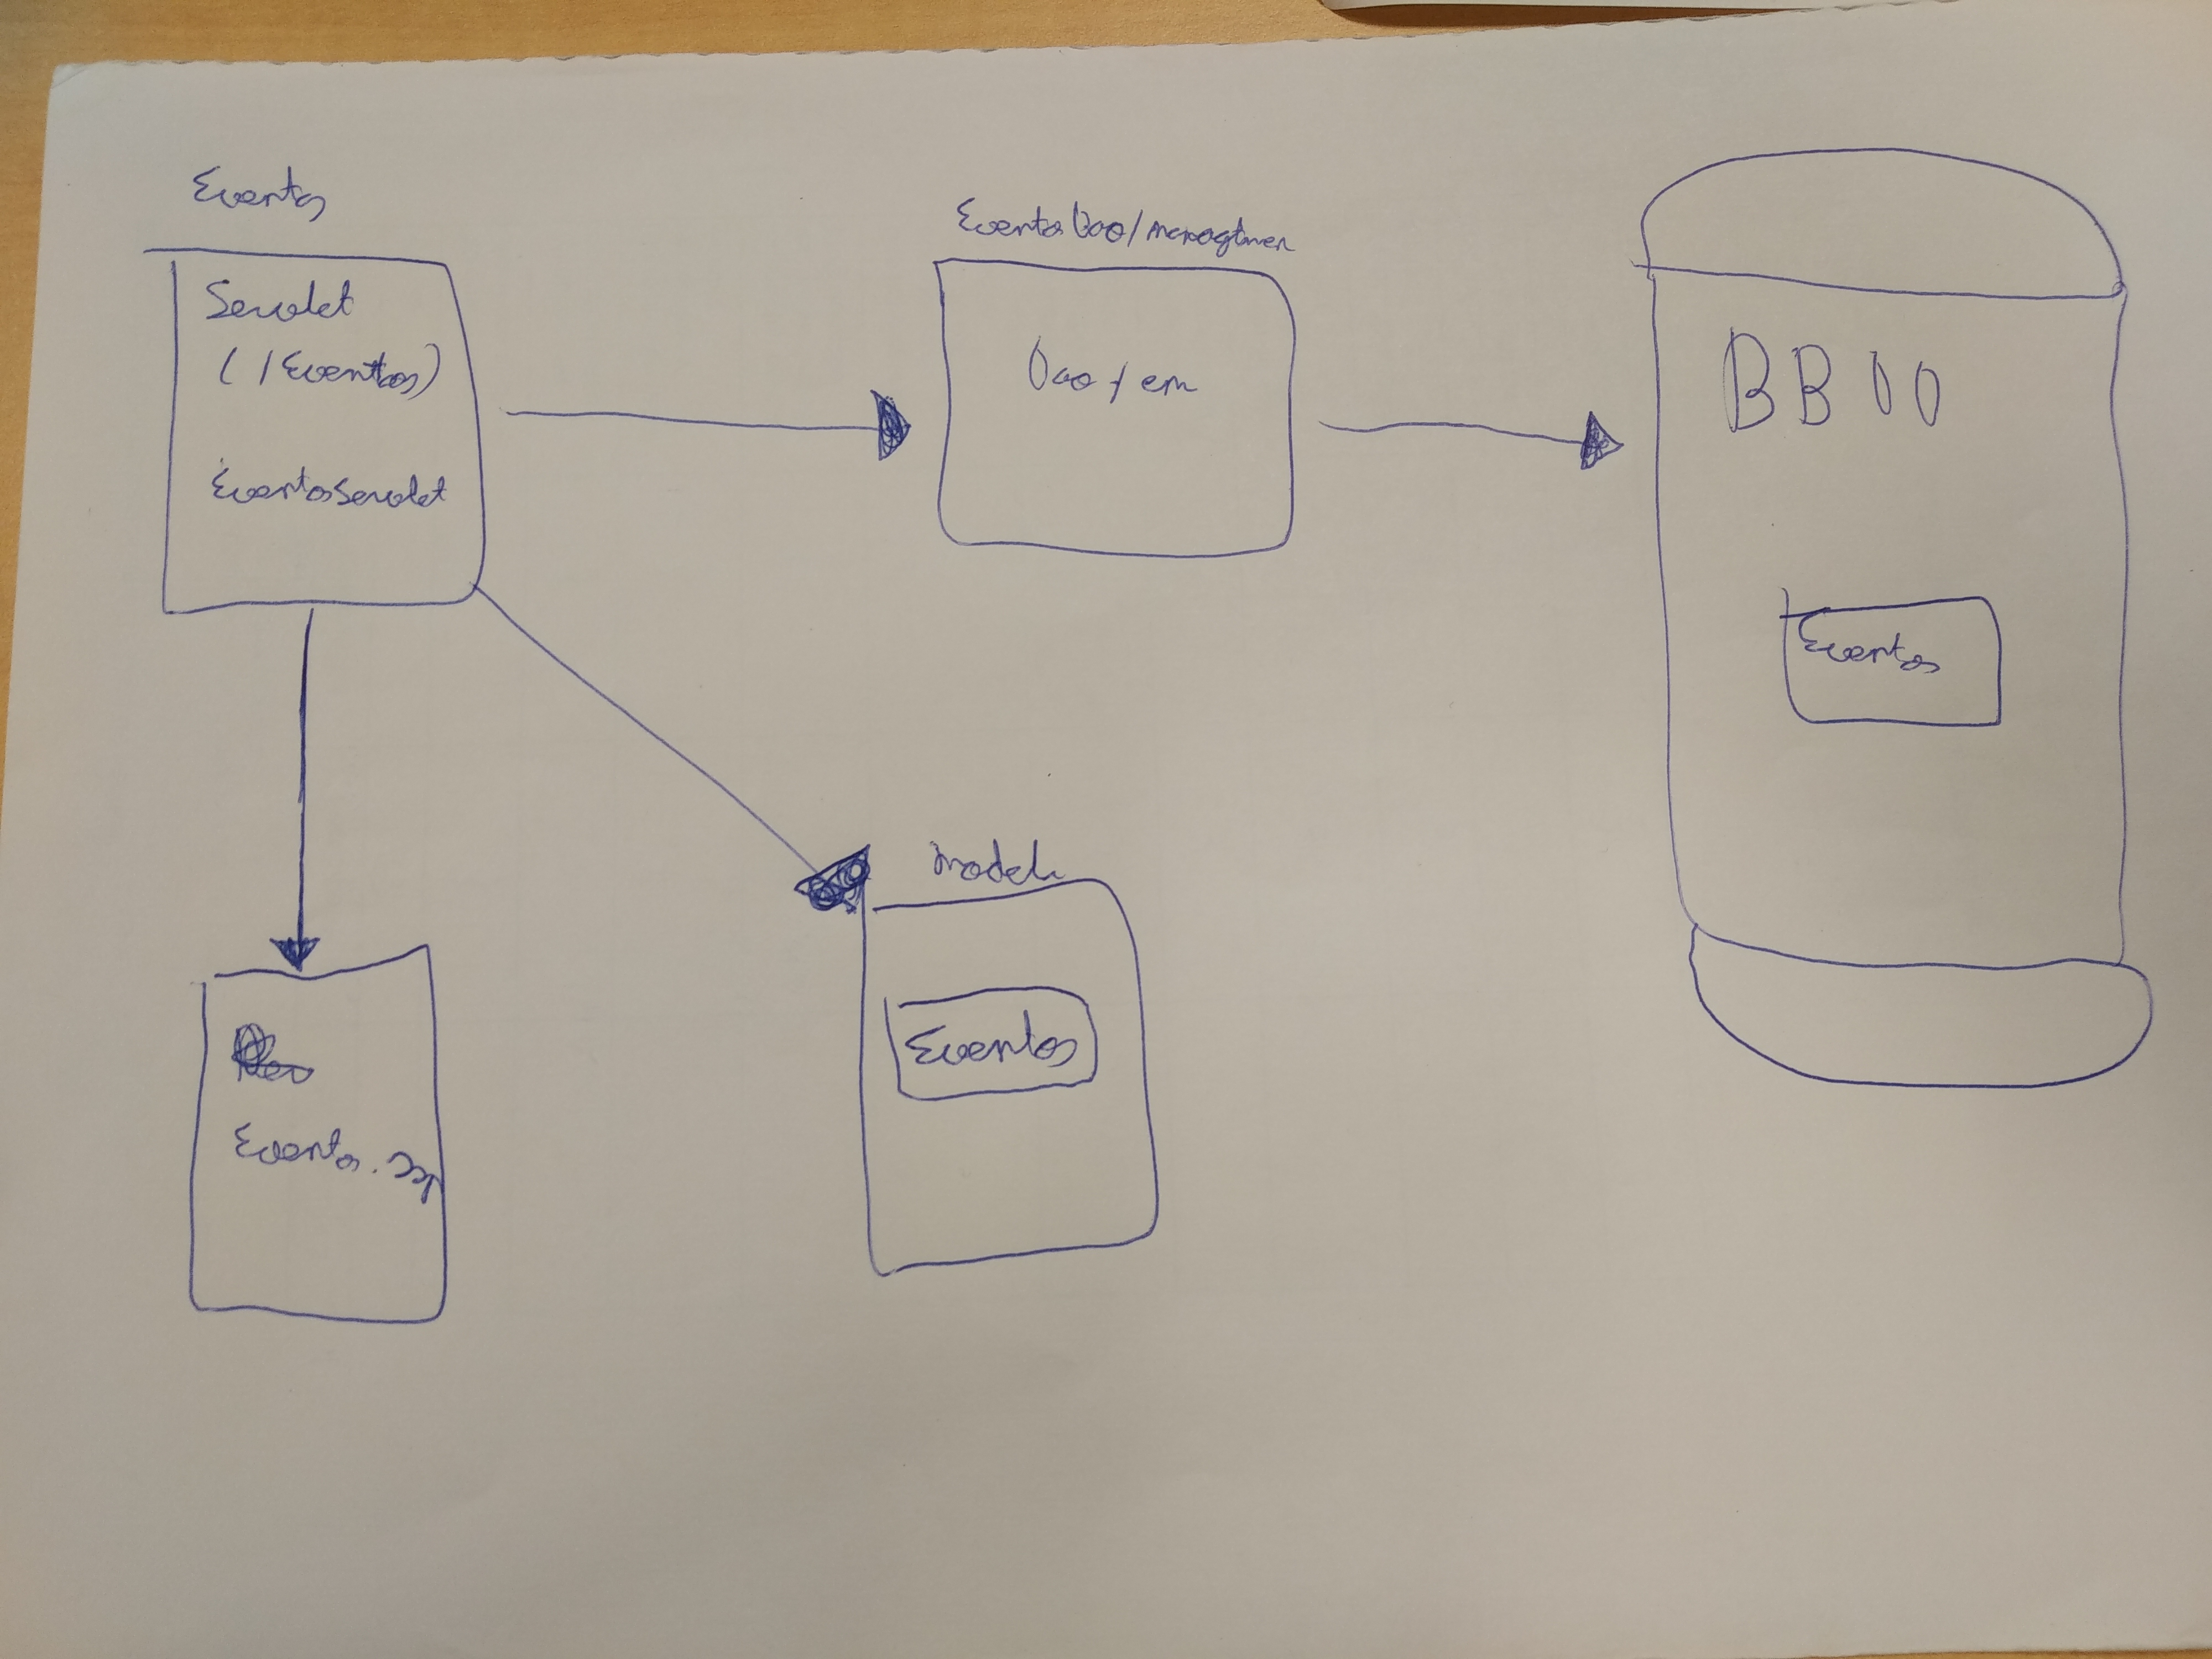 Eventos
Servlet
(/Eventos)
EventosServlet
EventosDao/
Dao / em
BBDD
Eventos
Model
Eventos
Eventos.jsp